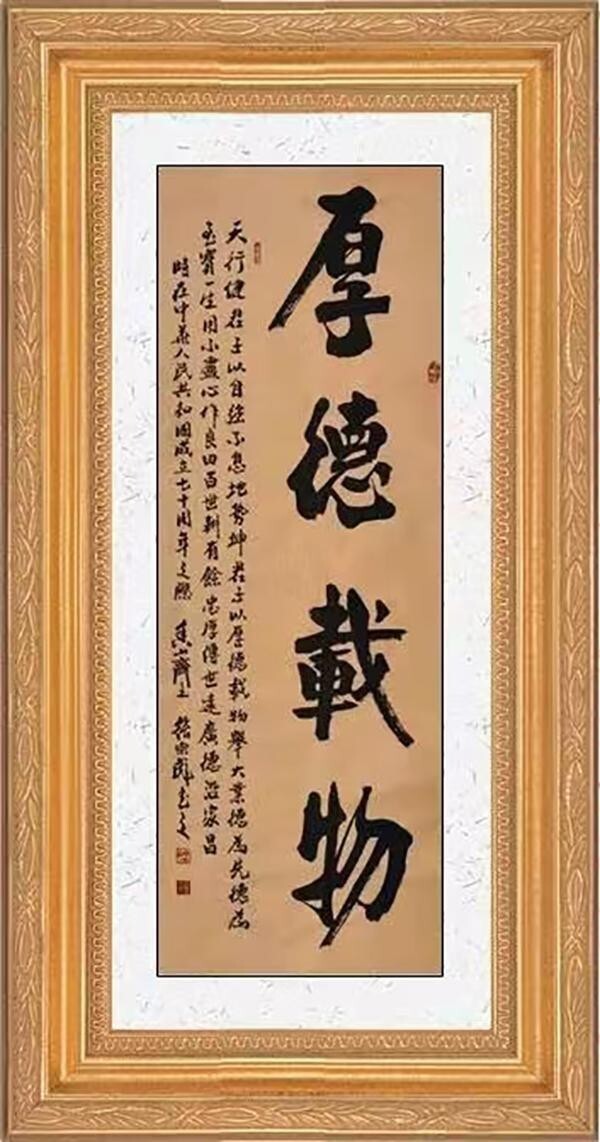 厚德載物
天行健君子以自強不息地勢坤君子以厚德載物舉大業德為先德為
至寶一生用不盡心作良田百世耕有餘忠厚傳世遠廣德家昌
時在中華人民共和國成立七十周年之際 山齋主